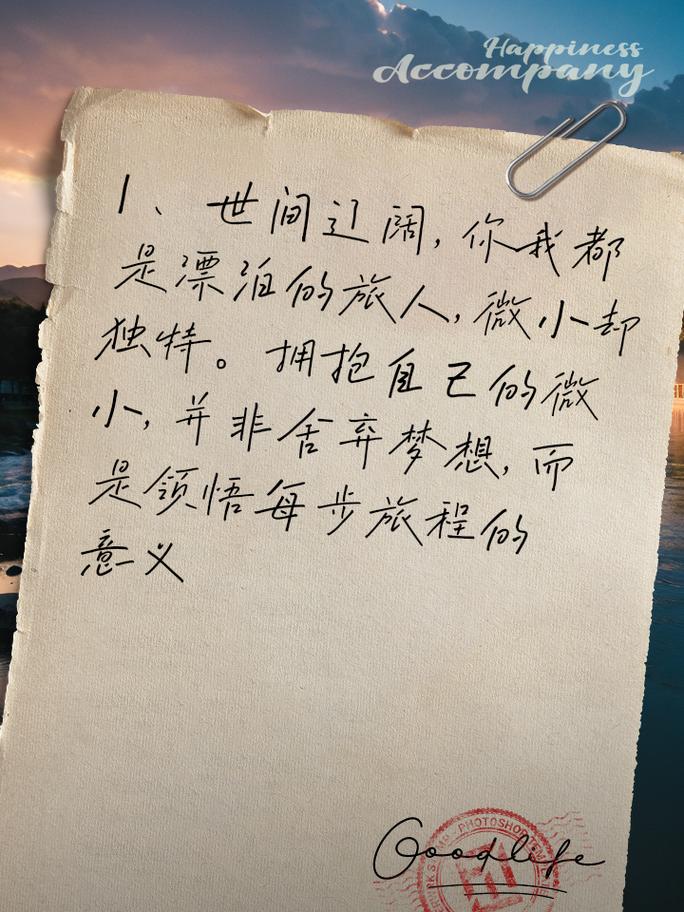 Happiness
Accompany
1、世间辽阔,你我都
是漂泊的旅人,微小却
独特。拥抱自己的微
小,并非舍弃梦想,而
是领悟每步旅程的
意义
Goodlife
PHOTOSHOP